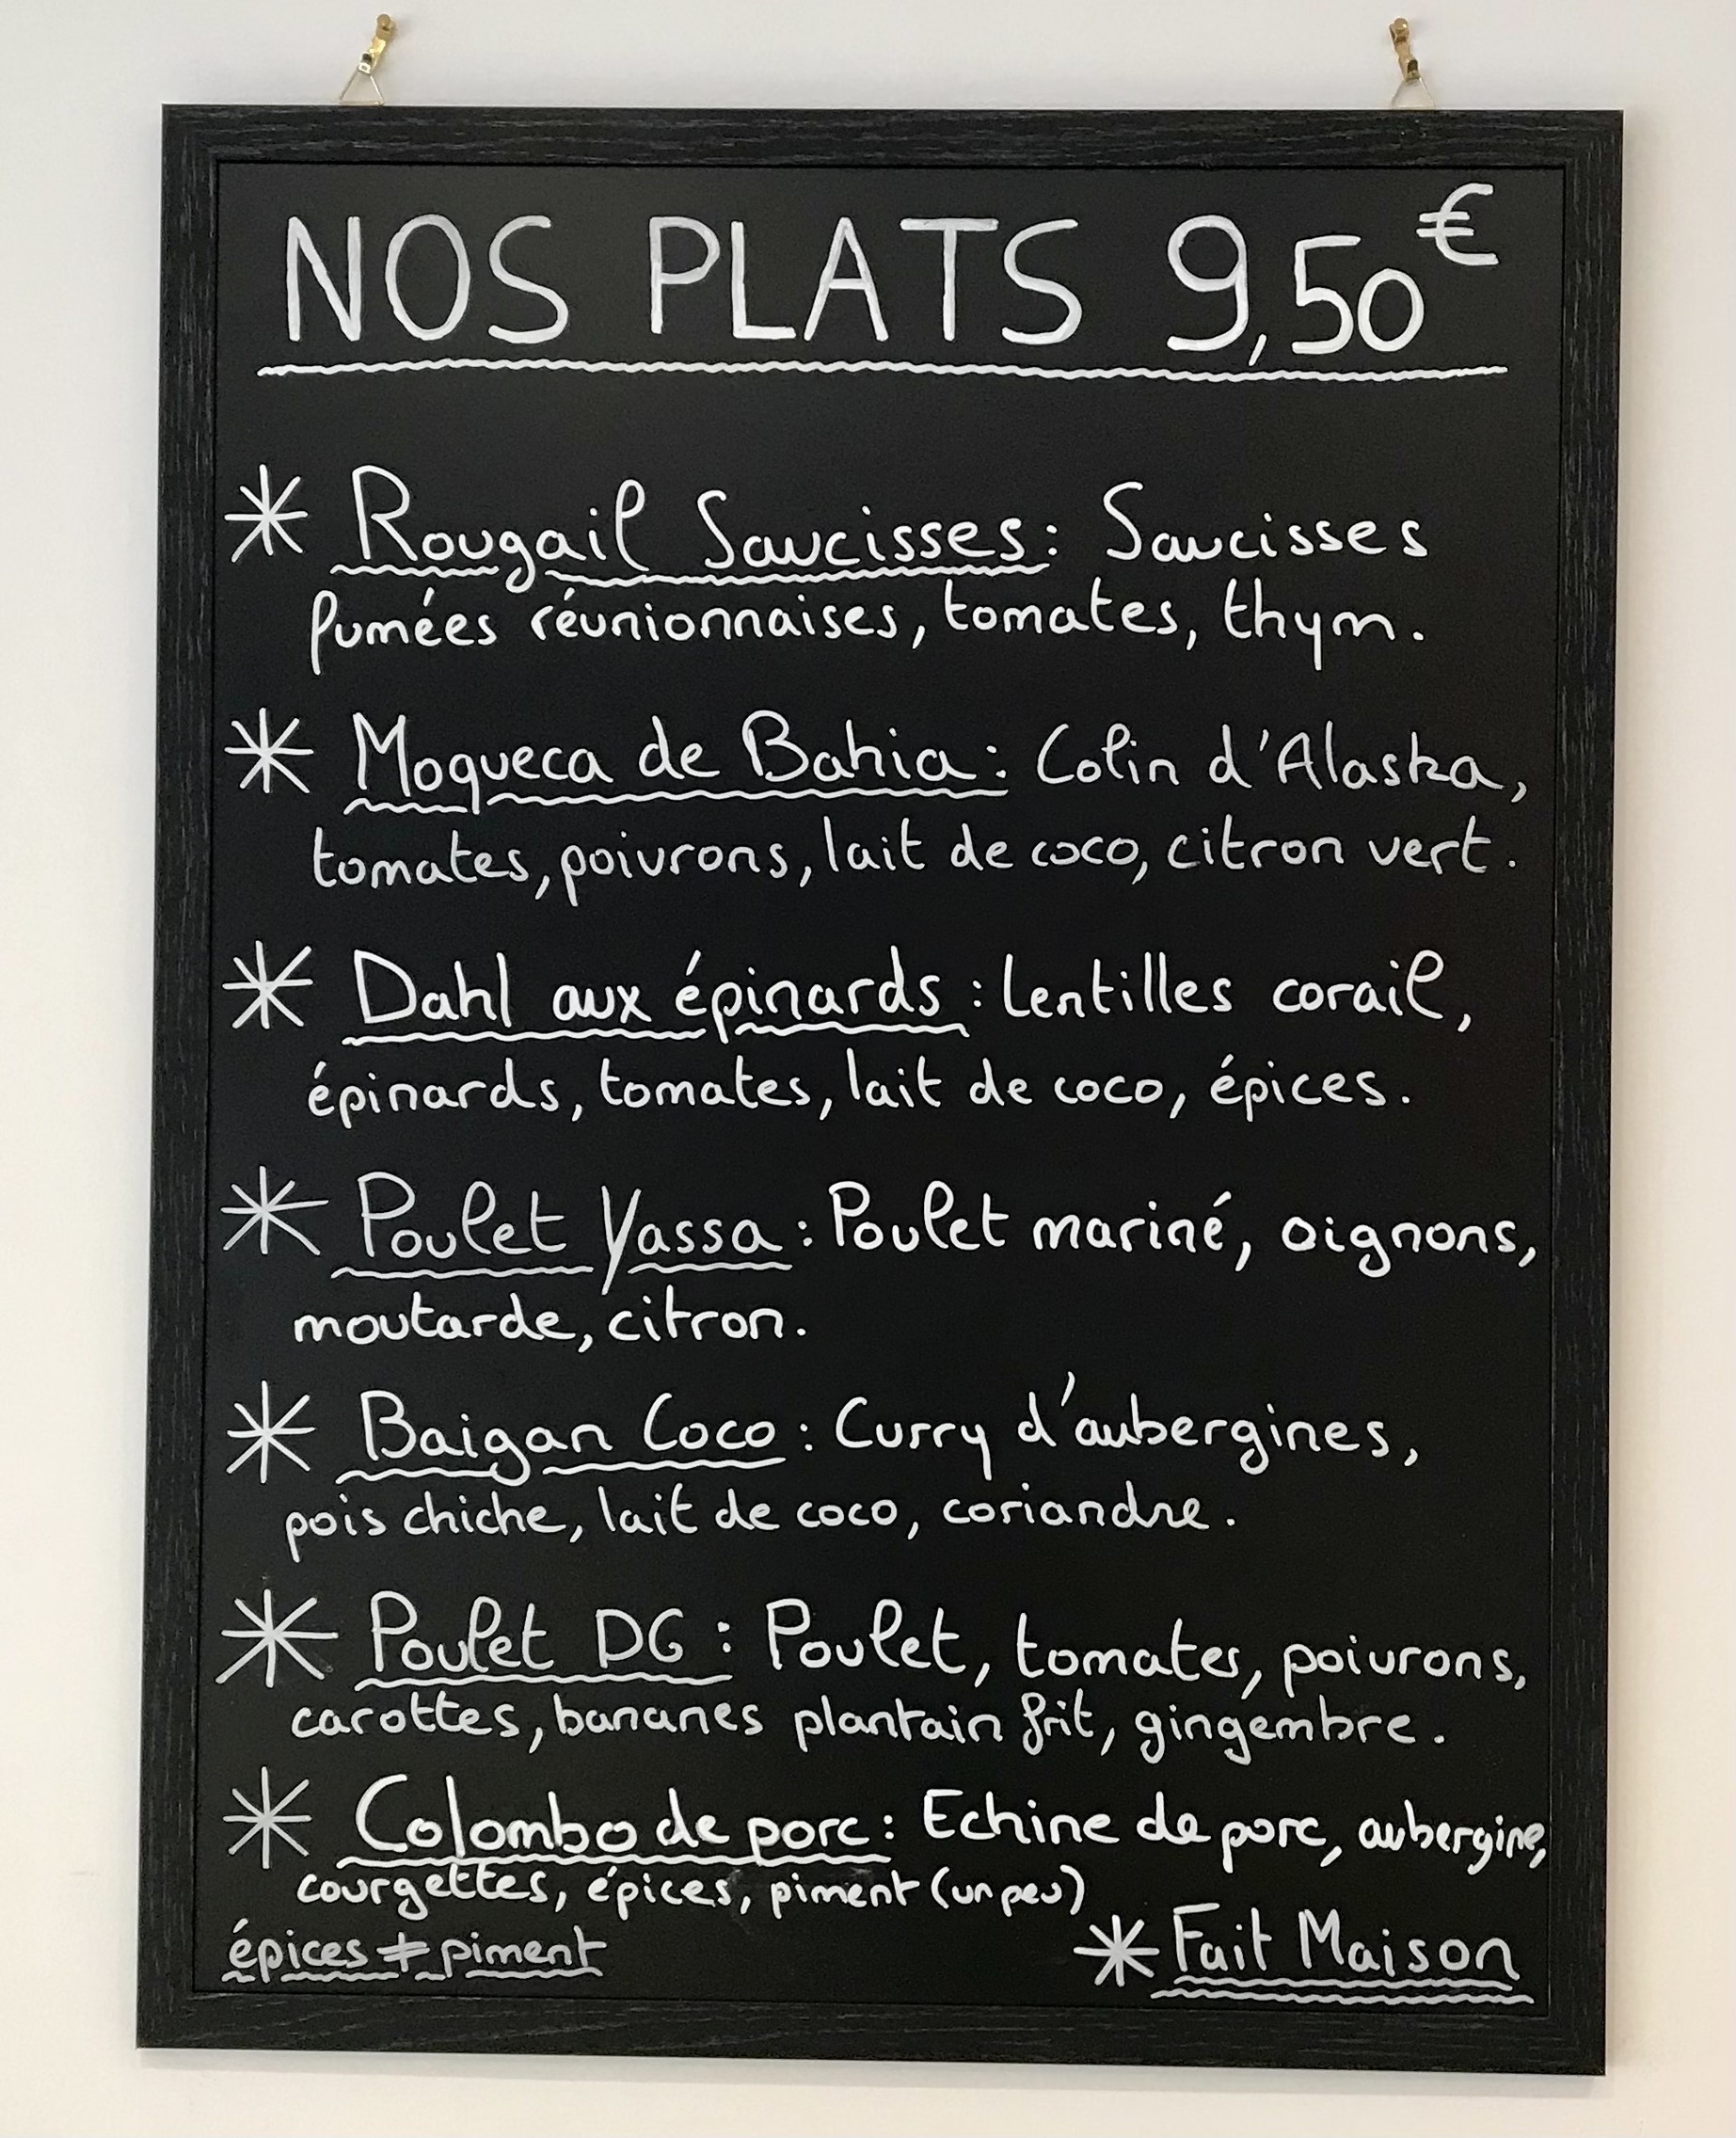 NOS PLATS 9,50€
* Rougail Saucisses : Saucisses
fumées réunionnaises, tomates, thym.
* Moqueca de Bahia : Colin d'Alaska,
tomates, poivrons, lait de coco, citron vert.
* Dahl aux épinards : lentilles corail,
épinards, tomates, lait de coco, épices.
* Poulet Yassa : Poulet mariné, oignons,
moutarde, citron.
* Baigan Coco : Curry d'aubergines,
pois chiche, lait de coco, coriandre.
* Poulet DG : Poulet, tomates, poivrons,
carottes, bananes plantain frit, gingembre.
* Colombo de porc : Echine de porc, aubergine,
courgettes, épices, piment (un peu)
épices ≠ piment
* Fait Maison